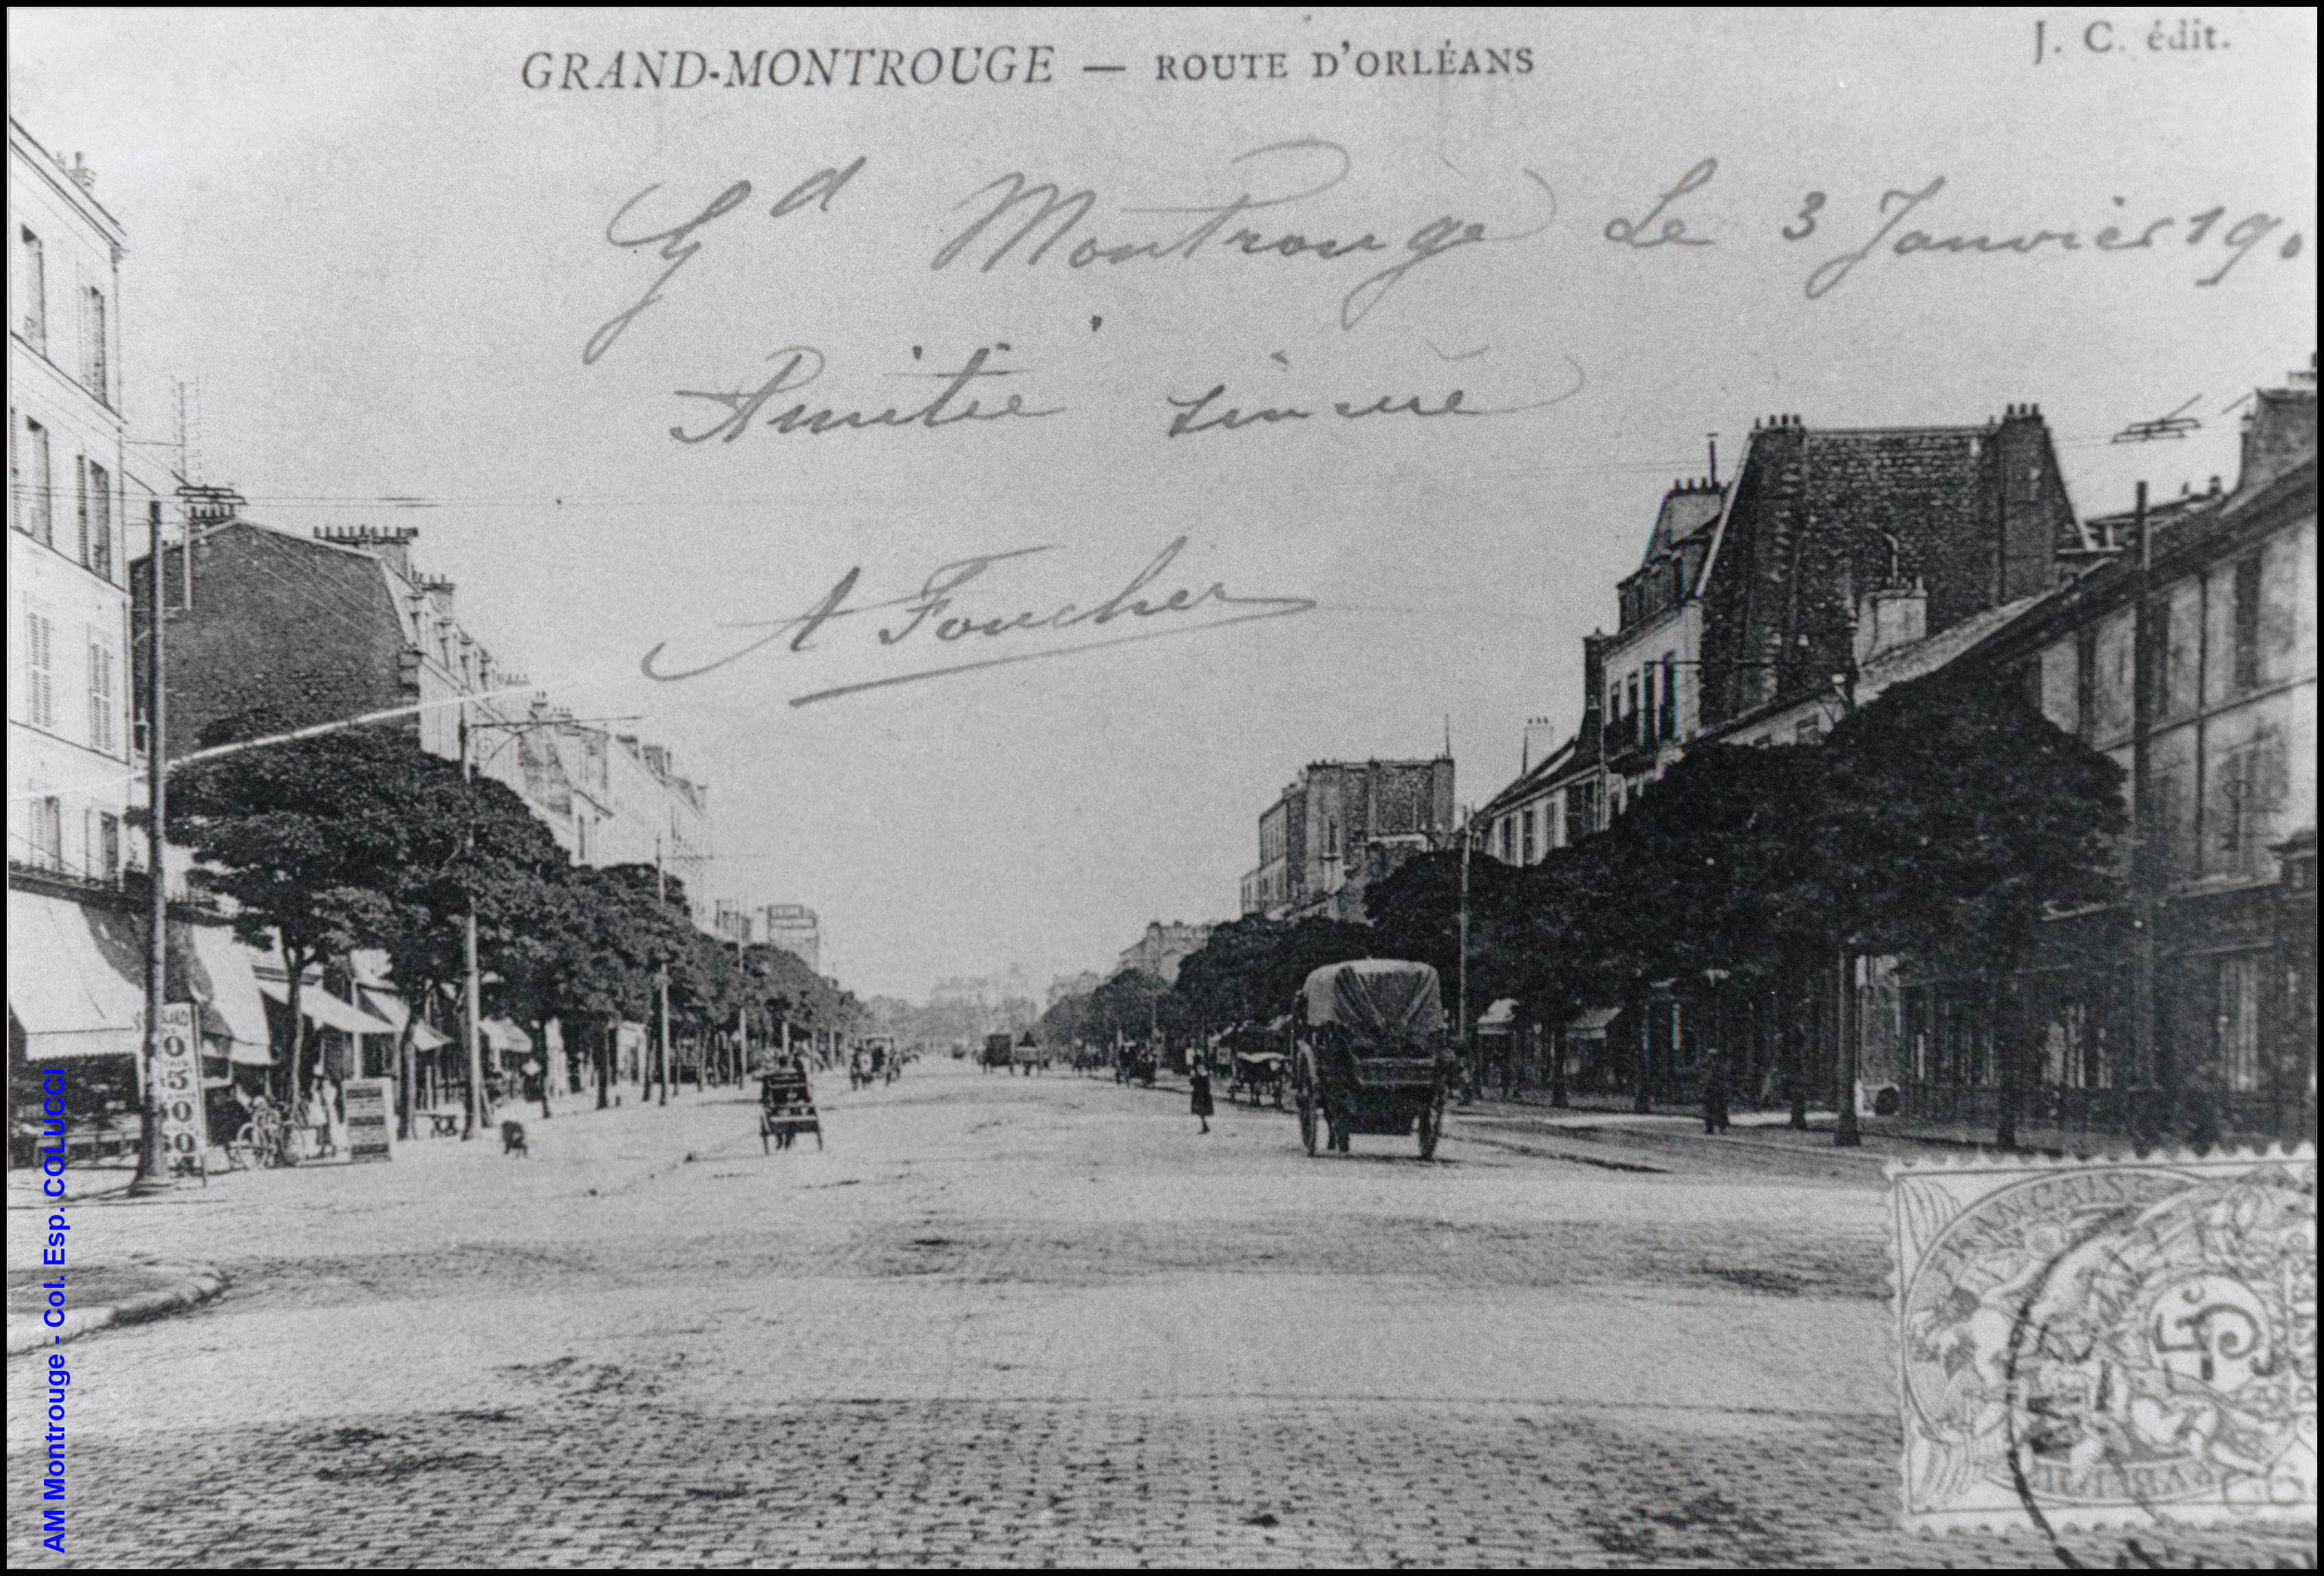 GRAND-MONTROUGE — ROUTE D'ORLÉANS
J. C. édit.
Gd Montrouge Le 3 Janvier 190
Amitié sincère
A Foucher
0
5
0
60
FRANÇAISE
5c
POSTES
AM Montrouge - Col. Esp. COLUCCI